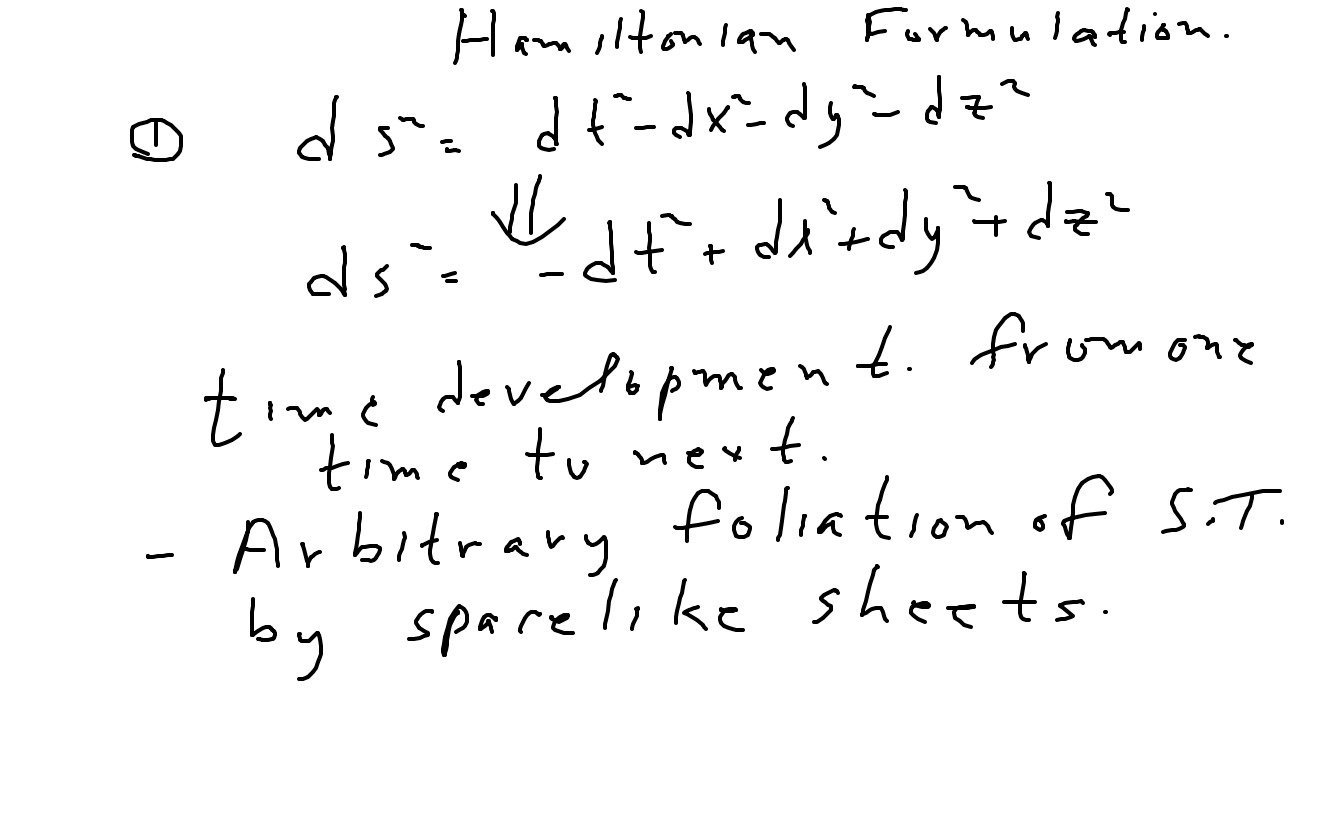 Hamiltonian Formulation.
① ds² = dt² - dx² - dy² - dz²
⇓
ds² = -dt² + dx² + dy² + dz²
time development. from one
time to next.
- Arbitrary foliation of S.T.
by spacelike sheets.